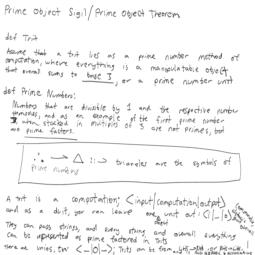 Prime Object Sigil/Prime Object Theorem
def Trit
Assume that a trit lies as a prime number method of
computation, where everything is a manipulatable object
that overall sums to base 3, or a prime number unit
def Prime Numbers:
Numbers that are divisible by 1 and the respective number
themselves, and as an example of the first prime number
3, when stacked in multiples of 3 are not primes, but
are prime factors.
∴ → △ ::→ triangles are the symbols of
prime numbers
A trit is a computation; <input/computation/output>
and as a do it, you can leave one unit out: <|-|0>
They can pass strings, and every string and overall everything
can be represented as prime factored in trits
There are unions, too: <-|0|->; Trits can be from